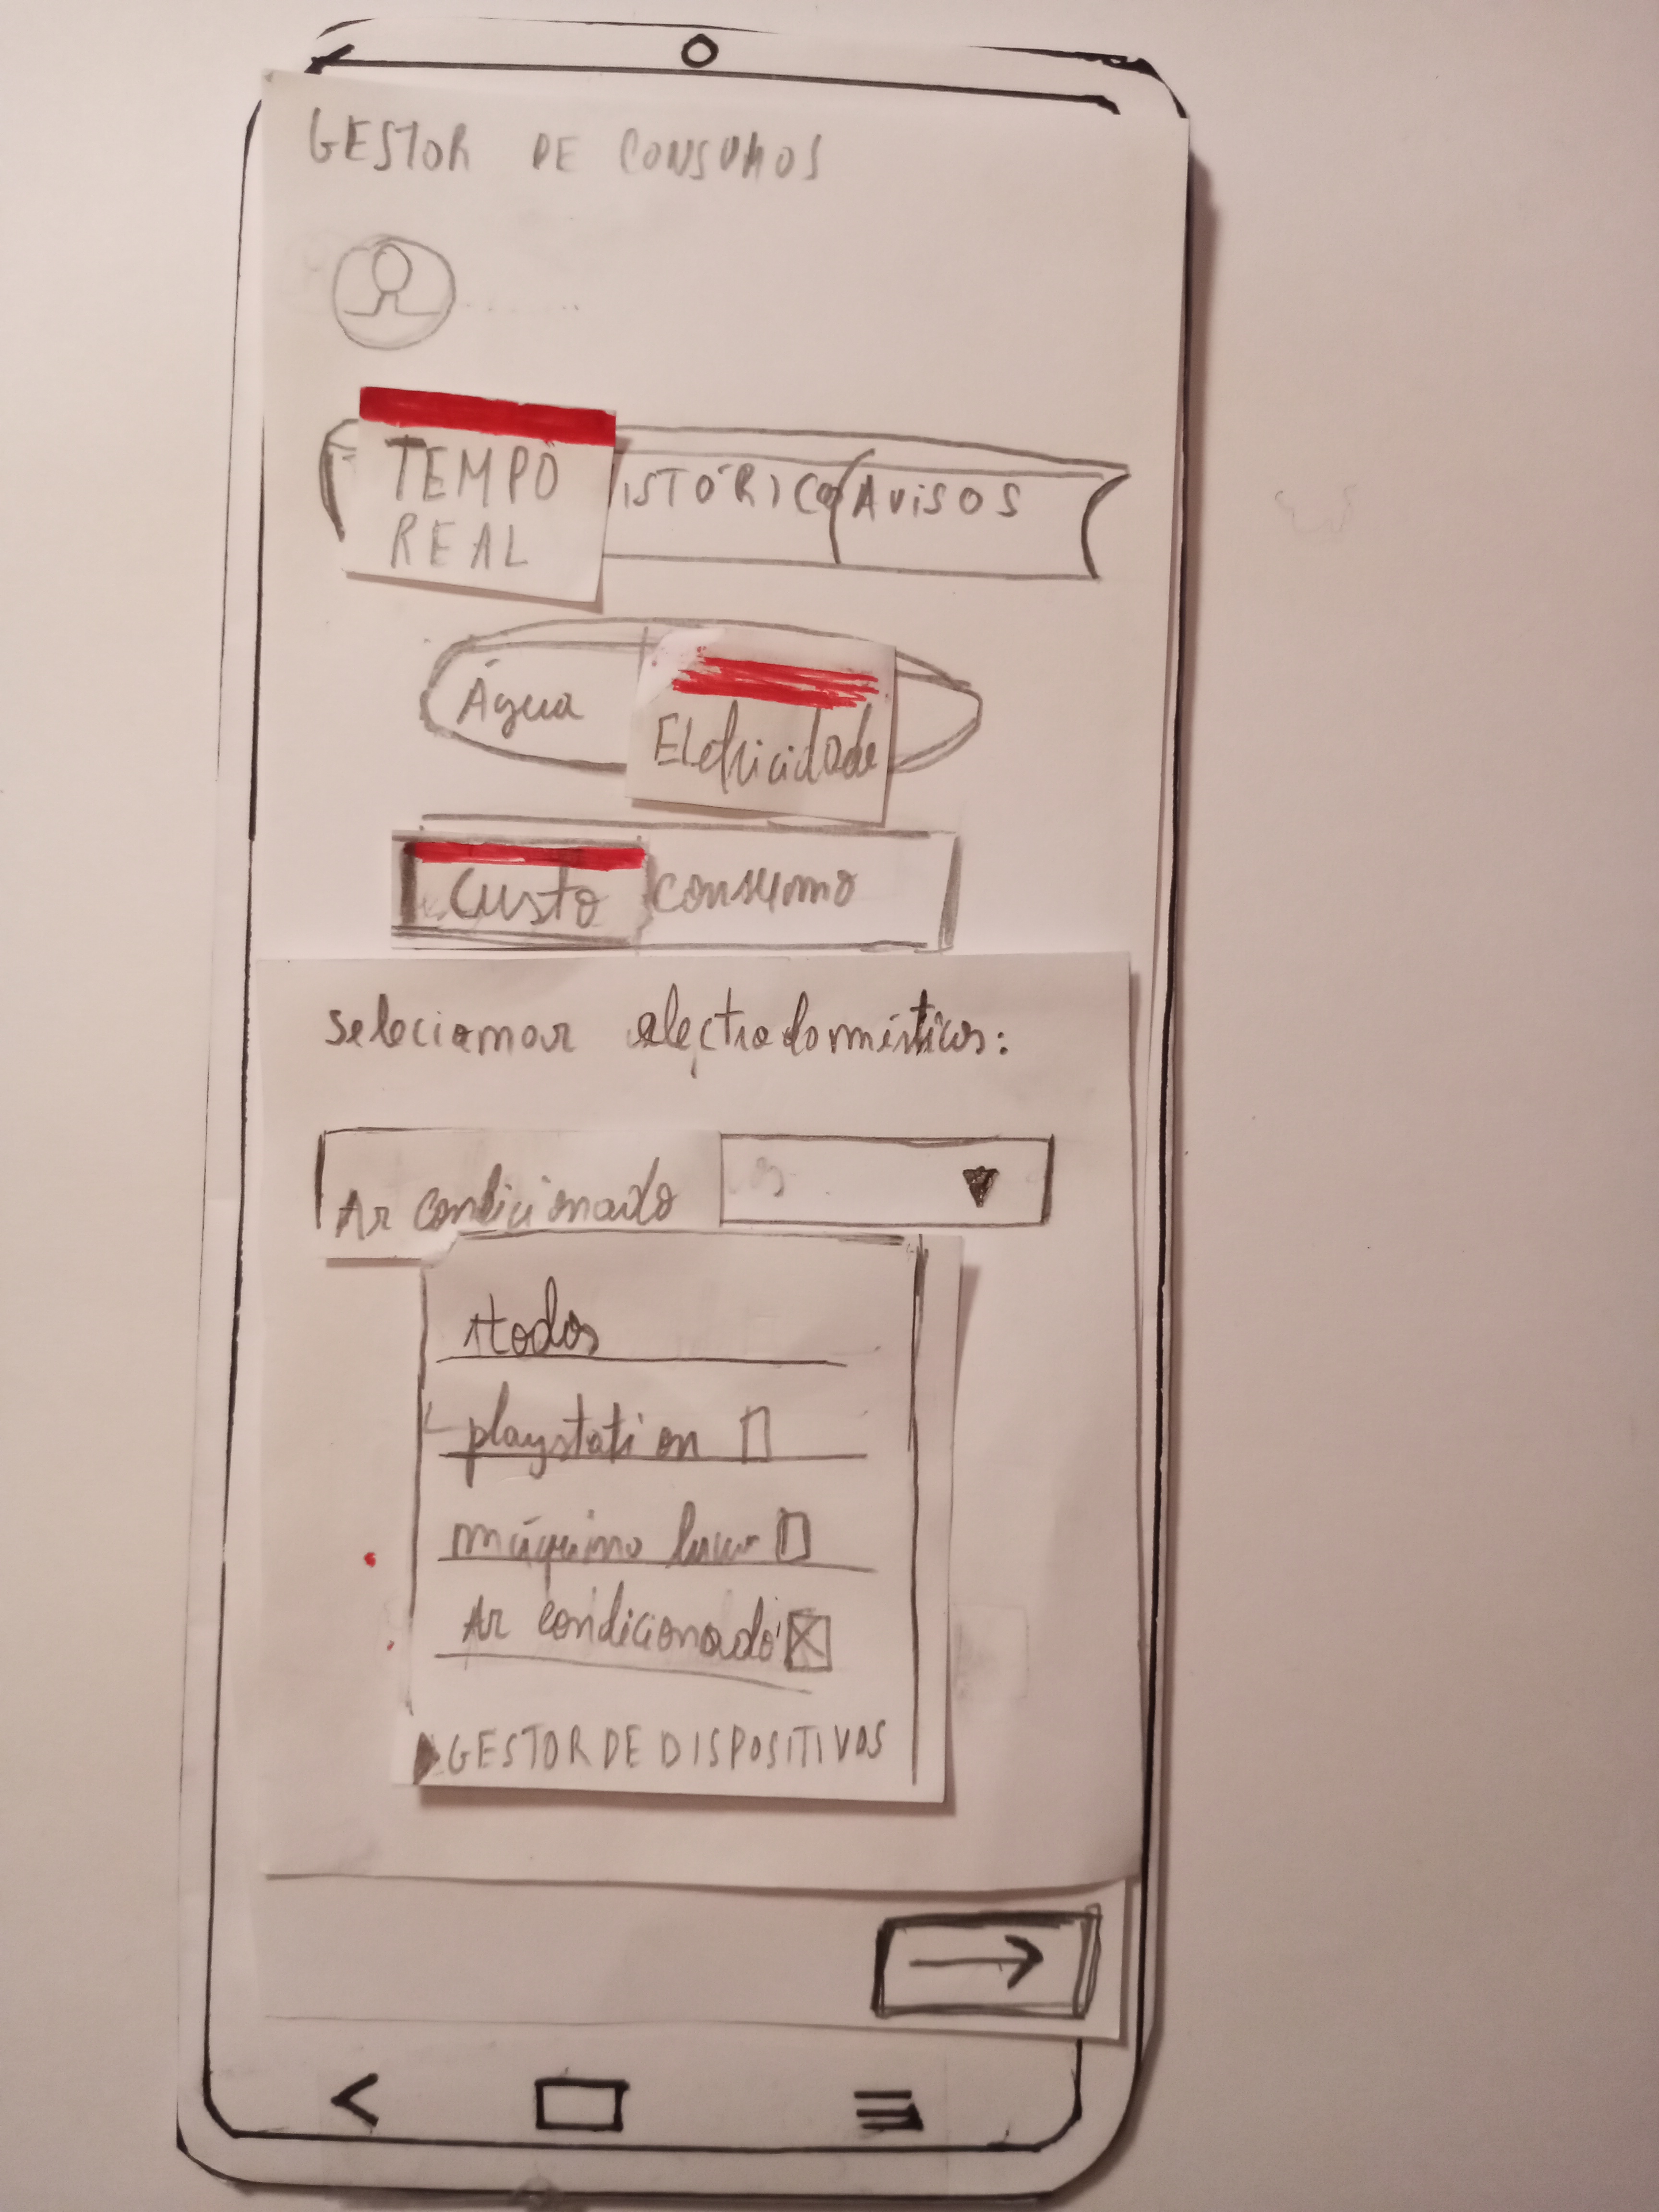 GESTOR DE CONSUMOS
TEMPO REAL
ISTÓRICO AVISOS
Água Eletricidade
Custo consumo
selecionar electrodomésticos:
Ar condicionado
todos
playstation
máquina
Ar condicionado
GESTOR DE DISPOSITIVOS